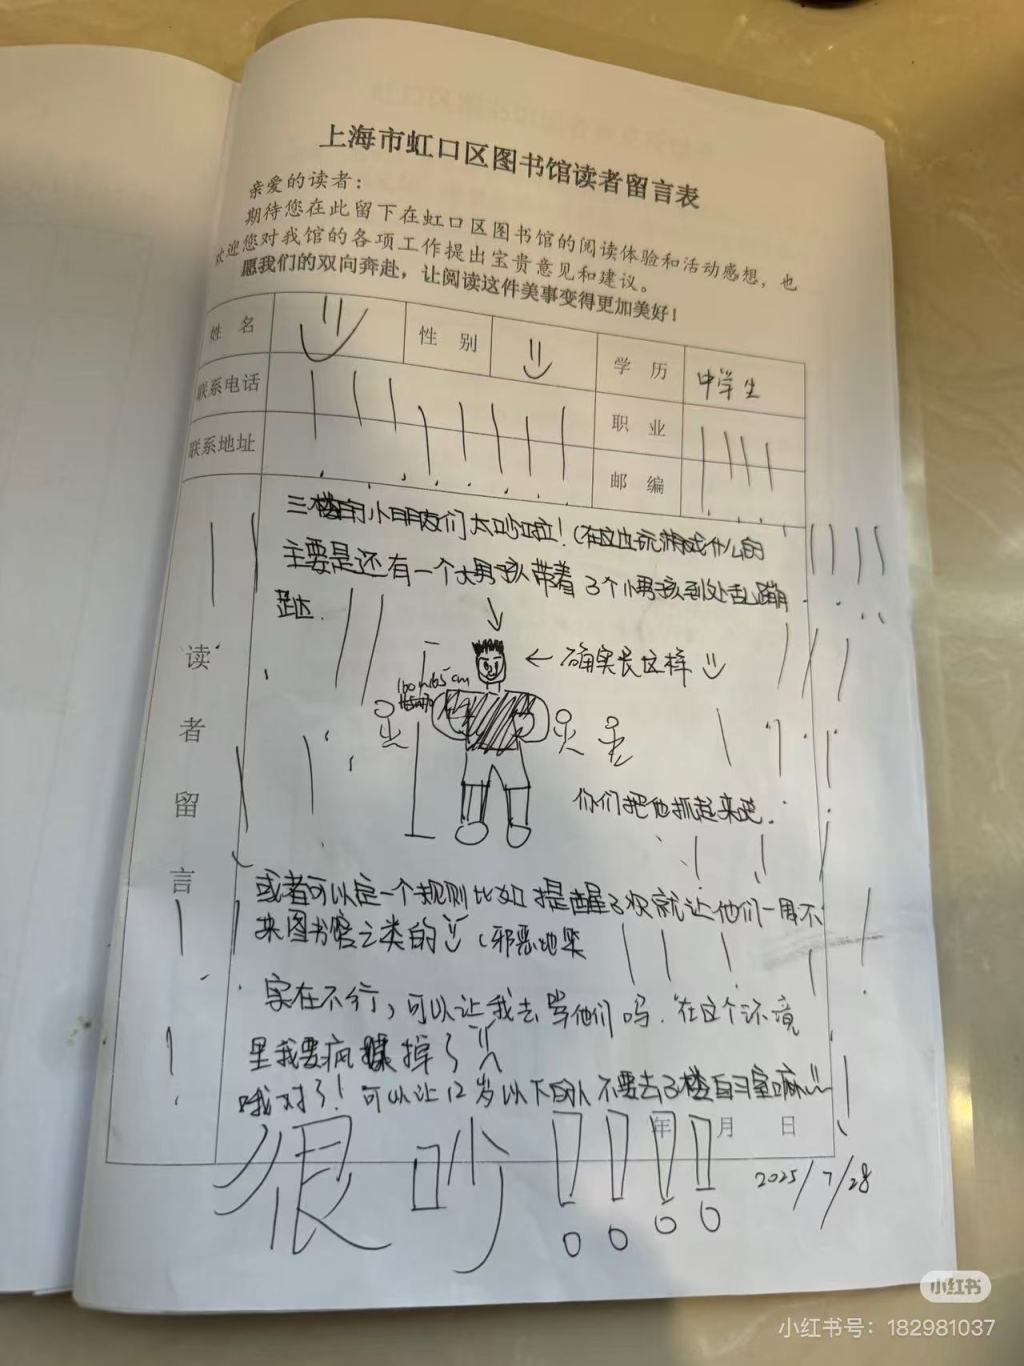 上海市虹口区图书馆读者留言表
亲爱的读者：
期待您在此留下在虹口区图书馆的阅读体验和活动感想，也
欢迎您对我馆的各项工作提出宝贵意见和建议。
愿我们的双向奔赴，让阅读这件美事变得更加美好！
姓 名 性 别 学 历 中学生
联系电话 职 业
联系地址 邮 编
读者留言
三楼的小朋友们太吵啦！（在这边玩游戏什么的
主要是还有一个大男孩带着3个小男孩到处乱蹦
跶.
← 确实长这样
160~165cm
你们把他抓起来吧.
或者可以定一个规则比如提醒3次就让他们一周不
来图书馆之类的（邪恶地笑
实在不行，可以让我去 他们吗.在这个环境
里我要疯掉了
哦对了！可以让12岁以下的人不要去3楼自习室嘛
年 月 日
很吵！！！！
2025/7/28
小红书
小红书号：182981037